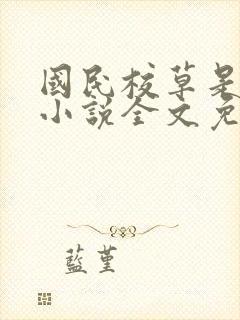 國民校草是
小說全文免
藍堇